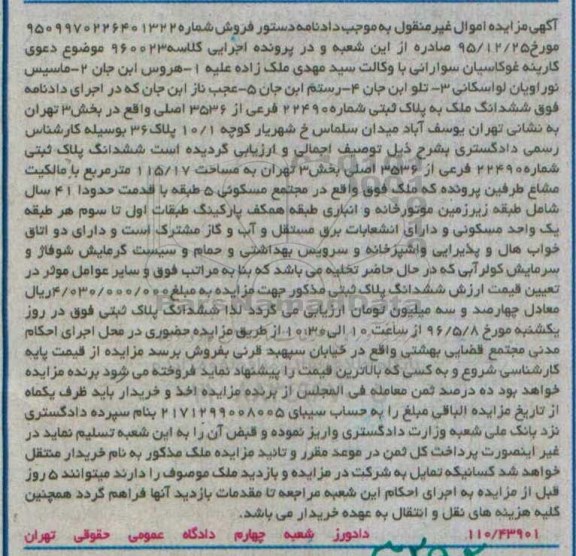 آگهی مزایده اموال غیر منقول به موجب دادنامه دستور فروش شماره ۹۵۰۹۹۷۰۲۲۶۴۰۱۳۲۲
مورخ ۹۵/۱۲/۲۵ صادره از این شعبه و در پرونده اجرایی کلاسه ۹۶۰۰۲۳ موضوع دعوی
کارینه غوکاسیان سورانی با وکالت سید مهدی ملک زاده علیه ۱-هروس ابن جان ۲-ماسیس
نور اویان لواسکانی ۳- تلو ابن جان ۴-رستم ابن جان ۵-عجب ناز ابن جان که در اجرای دادنامه
فوق ششدانگ ملک به پلاک ثبتی شماره ۲۲۴۹۰ فرعی از ۳۵۳۶ اصلی واقع در بخش ۳ تهران
به نشانی تهران یوسف آباد میدان سلماس خ شهریار کوچه ۱۰/۱ پلاک ۳۶ بوسیله کارشناس
رسمی دادگستری بشرح ذیل توصیف اجمالی و ارزیابی گردیده است ششدانگ پلاک ثبتی
شماره ۲۲۴۹۰ فرعی از ۳۵۳۶ اصلی بخش ۳ تهران به مساحت ۱۱۵/۱۷ مترمربع با مالکیت
مشاع طرفین پرونده که ملک فوق واقع در مجتمع مسکونی ۵ طبقه با قدمت حدودا ۴۱ سال
شامل طبقه زیرزمین موتورخانه و انباری طبقه همکف پارکینگ طبقات اول تا سوم هر طبقه
یک واحد مسکونی و دارای انشعابات برق مستقل و آب و گاز مشترک است و دارای دو اتاق
خواب هال و پذیرایی واشپزخانه و سرویس بهداشتی و حمام و سیست گرمایش شوفاژ و
سرمایش کولرآبی که در حال حاضر تخلیه می باشد که بنا به مراتب فوق و سایر عوامل موثر در
تعیین قیمت ارزش ششدانگ پلاک ثبتی مذکور جهت مزایده به مبلغ ۴/۰۳۰/۰۰۰/۰۰۰ ریال
معادل چهارصد و سه میلیون تومان ارزیابی می گردد لذا ششدانگ پلاک ثبتی فوق در روز
یکشنبه مورخ ۹۶/۵/۸ از ساعت ۱۰ الی ۱۰:۳۰ از طریق مزایده حضوری در محل اجرای احکام
مدنی مجتمع قضایی بهشتی واقع در خیابان سپهبد قرنی بفروش برسد مزایده از قیمت پایه
کارشناسی شروع و به کسی که بالاترین قیمت را پیشنهاد نماید فروخته می شود برنده مزایده
خواهد بود ده درصد ثمن معامله فی المجلس از برنده مزایده اخذ و خریدار باید ظرف یکماه
از تاریخ مزایده الباقی مبلغ را به حساب سیبای ۲۱۷۱۲۹۹۰۰۸۰۰۵ بنام سپرده دادگستری
نزد بانک ملی شعبه وزارت دادگستری واریز نموده و قبض آن را به این شعبه تسلیم نماید در
غیر اینصورت پرداخت کل ثمن در موعد مقرر و تائید مزایده ملک مذکور به نام خریدار منتقل
خواهد شد کسانیکه تمایل به شرکت در مزایده و بازدید ملک موصوف را دارند میتوانند ۵ روز
قبل از مزایده به اجرای احکام این شعبه مراجعه تا مقدمات بازدید آنها فراهم گردد همچنین
کلیه هزینه های نقل و انتقال به عهده خریدار می باشد.
۱۱۰/۴۳۹۰۱ دادورز شعبه چهارم دادگاه عمومی حقوقی تهران